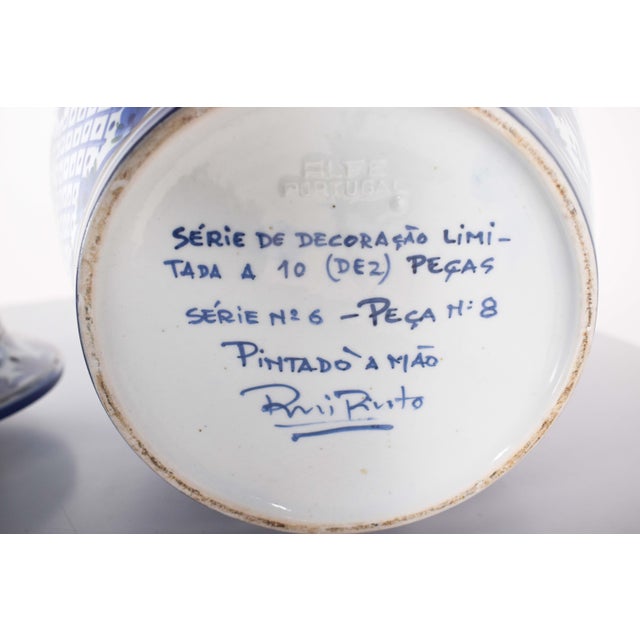 PORTUGAL
SÉRIE DE DECORAÇÃO LIMI-
TADA A 10 (DEZ) PEÇAS
SÉRIE Nº 6 - PEÇA Nº 8
PINTADO À MÃO
Rui Pinto